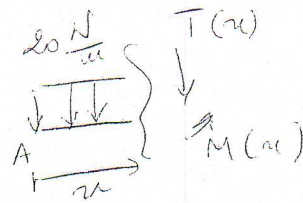 20 N/m
T(x)
A
x
M(x)